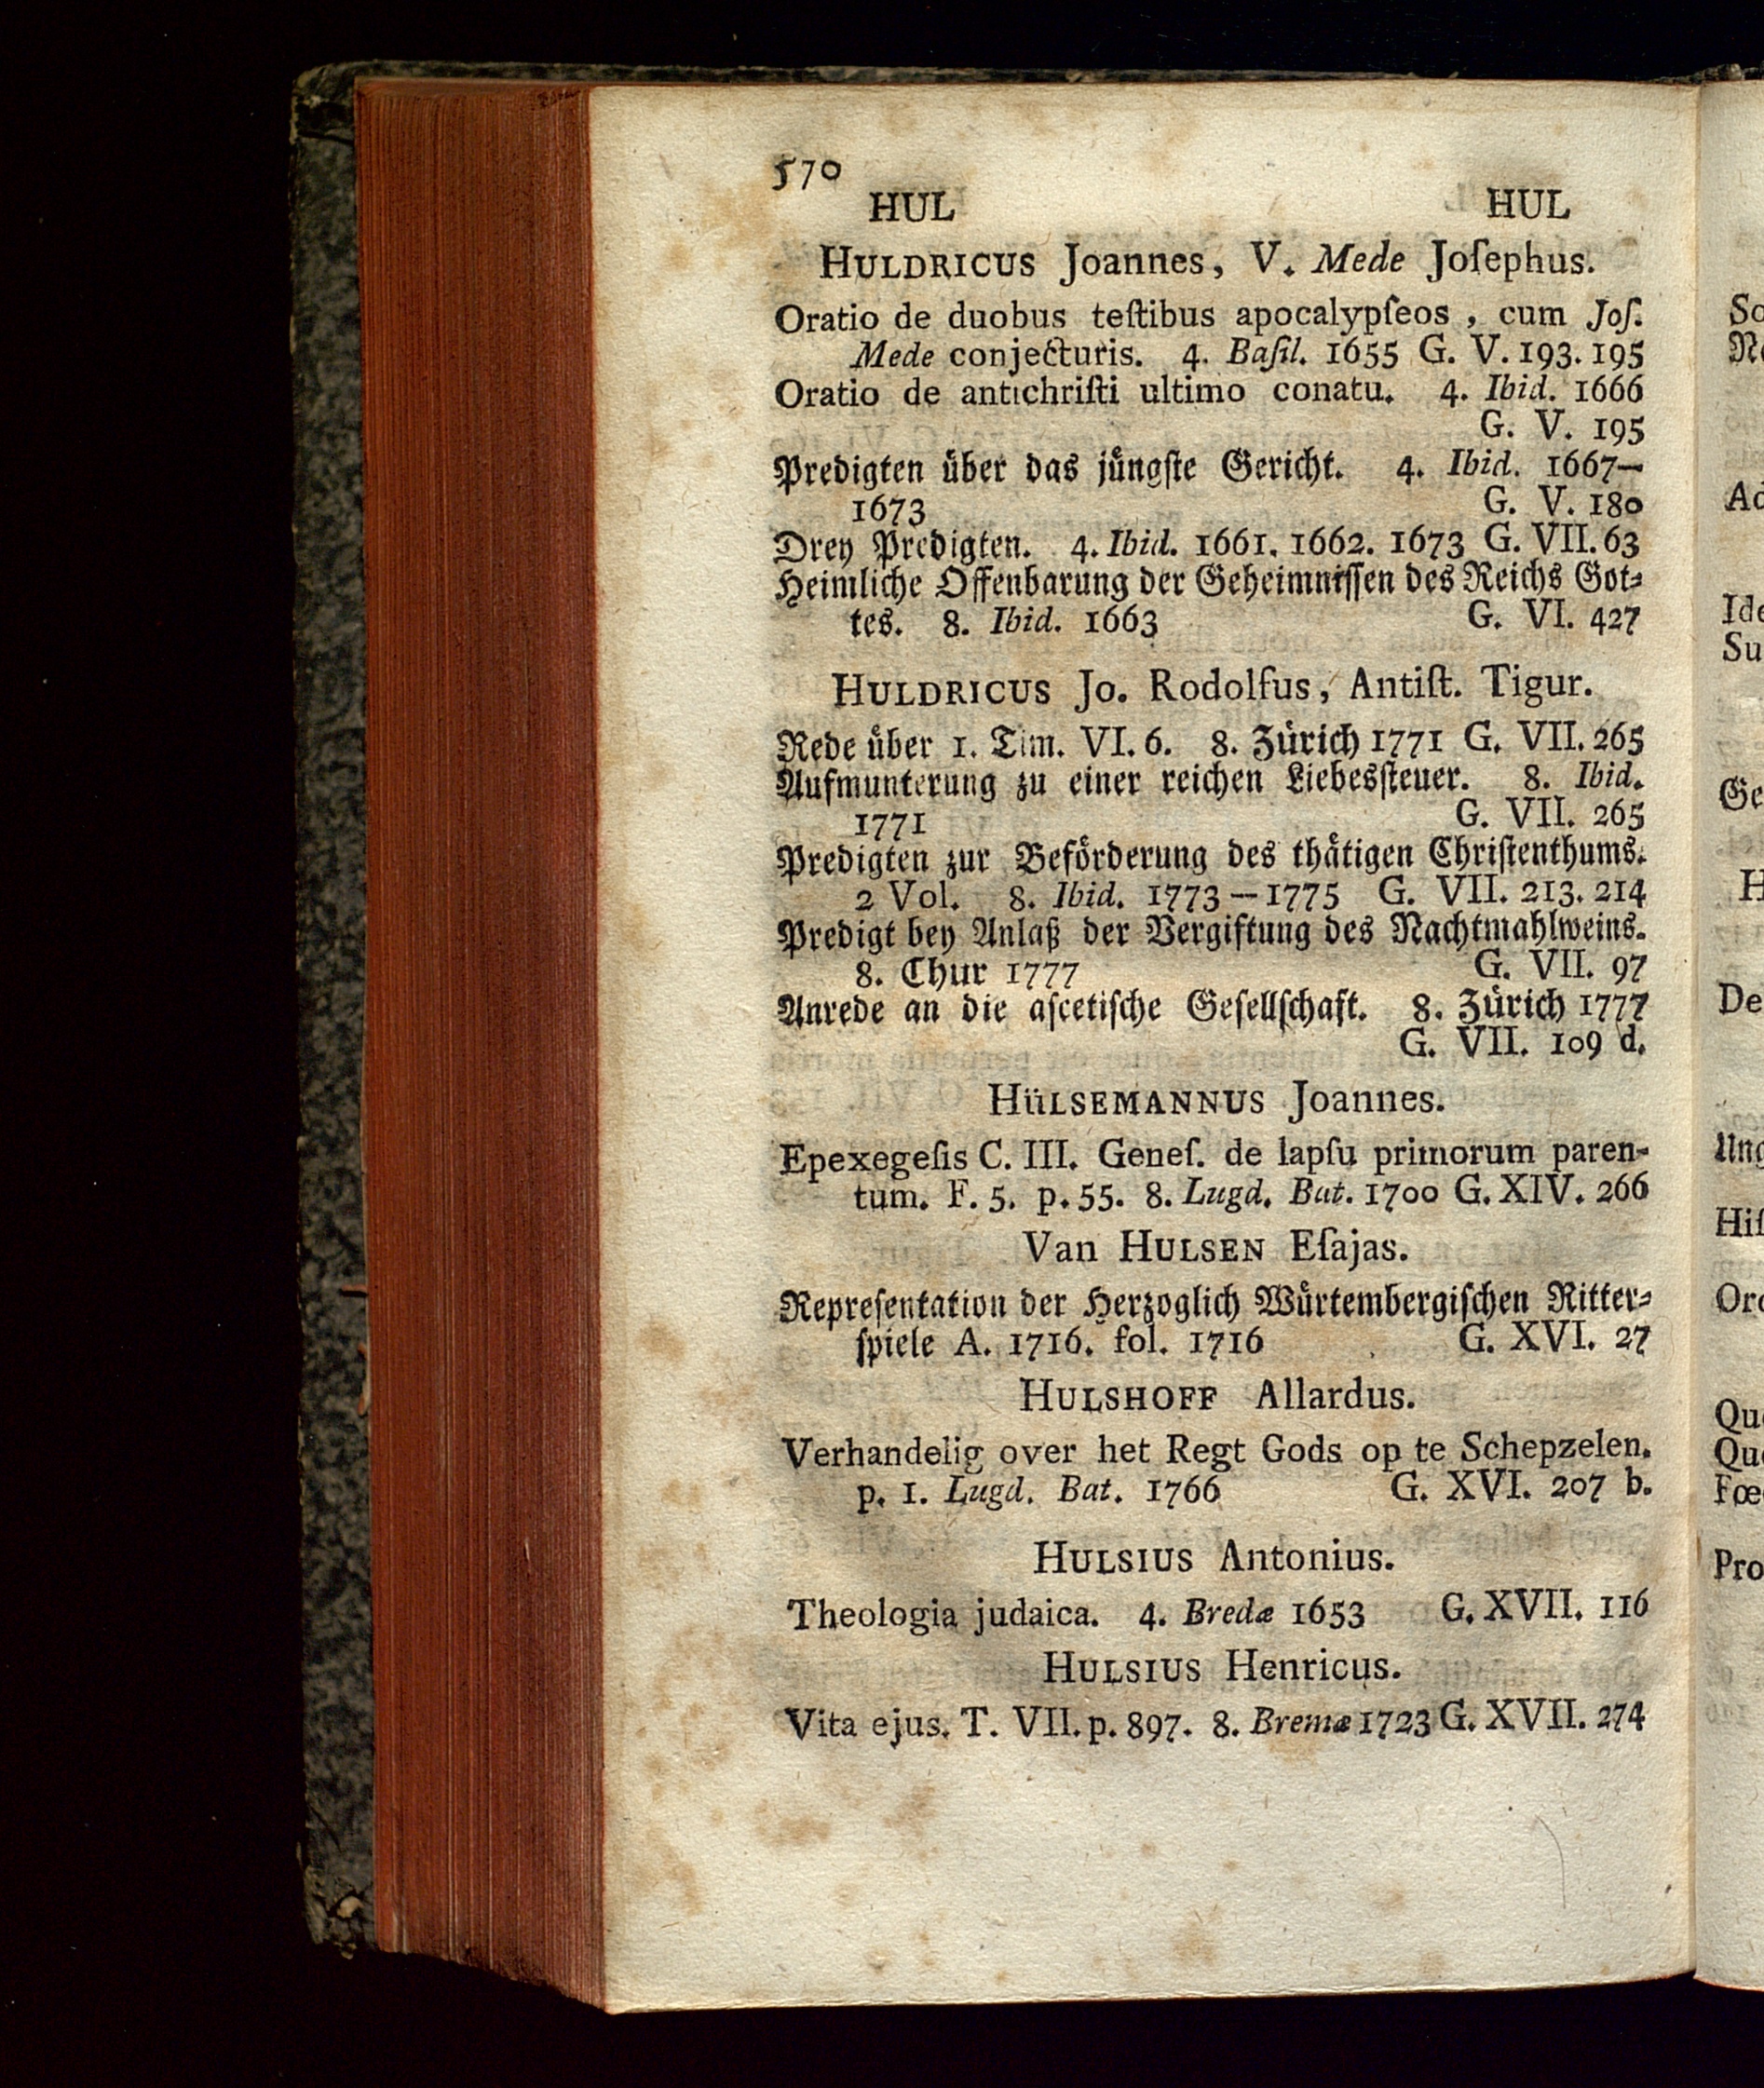 570
HUL HUL
HULDRICUS Joannes, V. Mede Joſephus.
Oratio de duobus teſtibus apocalypſeos, cum Joſ.
Mede conjecturis. 4. Baſil. 1655 G. V. 193. 195
Oratio de antichriſti ultimo conatu. 4. Ibid. 1666
G. V. 195
Predigten über das jüngſte Gericht. 4. Ibid. 1667—
1673 G. V. 180
Drey Predigten. 4. Ibid. 1661. 1662. 1673 G. VII. 63
Heimliche Offenbarung der Geheimniſſen des Reichs Got⸗
tes. 8. Ibid. 1663 G. VI. 427
HULDRICUS Jo. Rodolfus, Antiſt. Tigur.
Rede über 1. Tim. VI. 6. 8. Zürich 1771 G. VII. 265
Aufmunterung zu einer reichen Liebesſteuer. 8. Ibid.
1771 G. VII. 265
Predigten zur Beförderung des thätigen Chriſtenthums.
2 Vol. 8. Ibid. 1773—1775 G. VII. 213. 214
Predigt bey Anlaß der Vergiftung des Nachtmahlweins.
8. Chur 1777 G. VII. 97
Anrede an die aſcetiſche Geſellſchaft. 8. Zürich 1777
G. VII. 109 d.
HüLSEMANNUS Joannes.
Epexegeſis C. III. Geneſ. de lapſu primorum paren-
tum. F. 5. p. 55. 8. Lugd. Bat. 1700 G. XIV. 266
Van HULSEN Eſajas.
Repreſentation der Herzoglich Würtembergiſchen Ritter⸗
ſpiele A. 1716. fol. 1716 G. XVI. 27
HULSHOFF Allardus.
Verhandelig over het Regt Gods op te Schepzelen.
p. 1. Lugd. Bat. 1766 G. XVI. 207 b.
HULSIUS Antonius.
Theologia judaica. 4. Bredæ 1653 G. XVII. 116
HULSIUS Henricus.
Vita ejus. T. VII. p. 897. 8. Bremæ 1723 G. XVII. 274